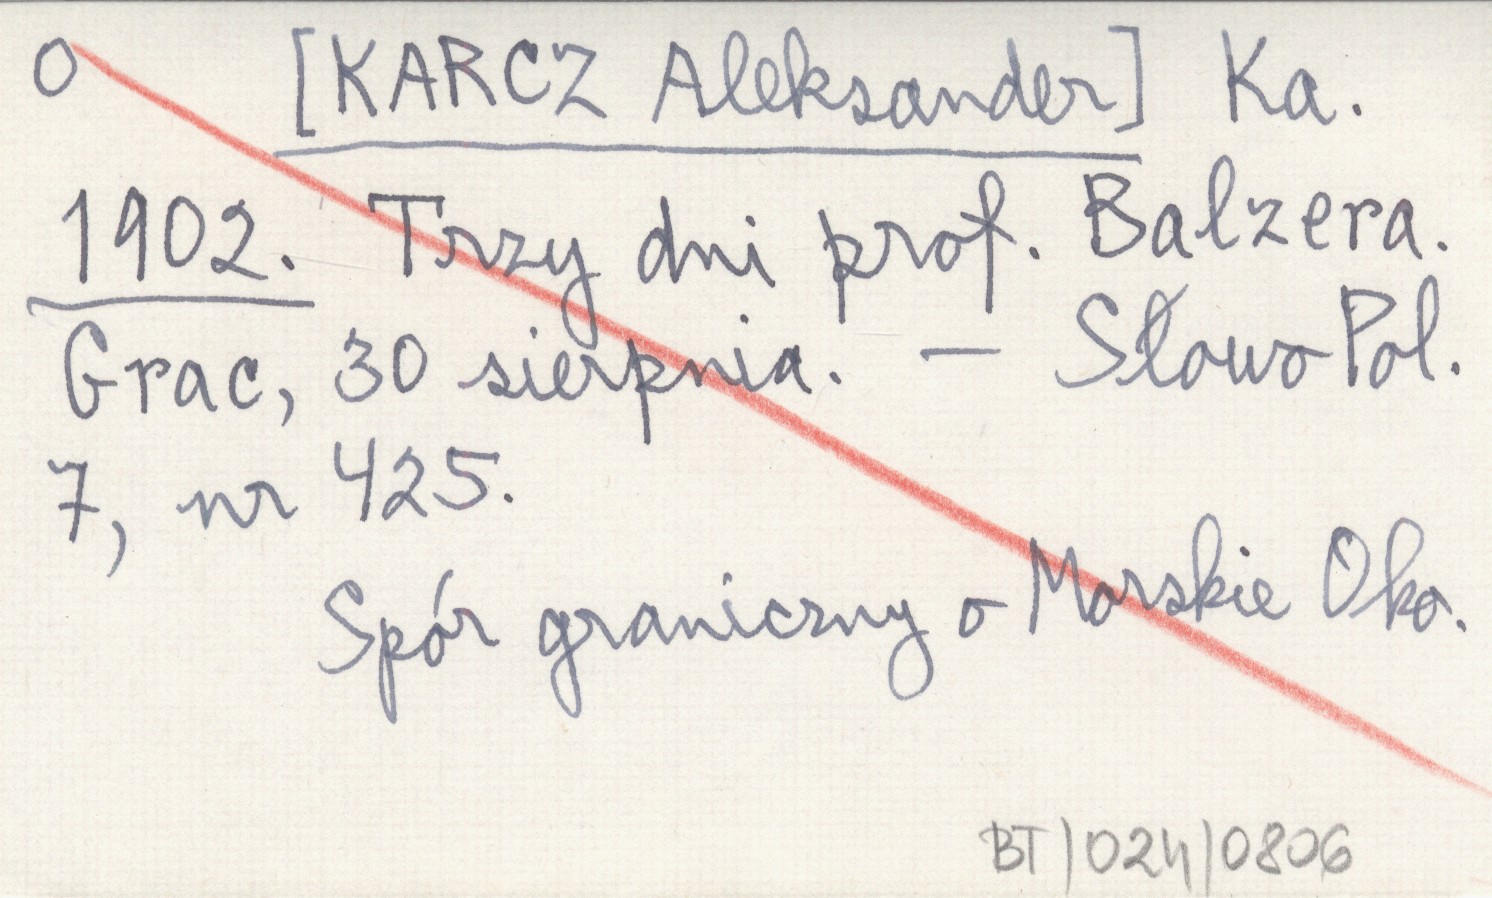 O [KARCZ Aleksander] Ka.
1902. Trzy dni prof. Balzera.
Grac, 30 sierpnia. — Słowo Pol.
7, nr 425.
Spór graniczny o Morskie Oko.
BT/024/0806